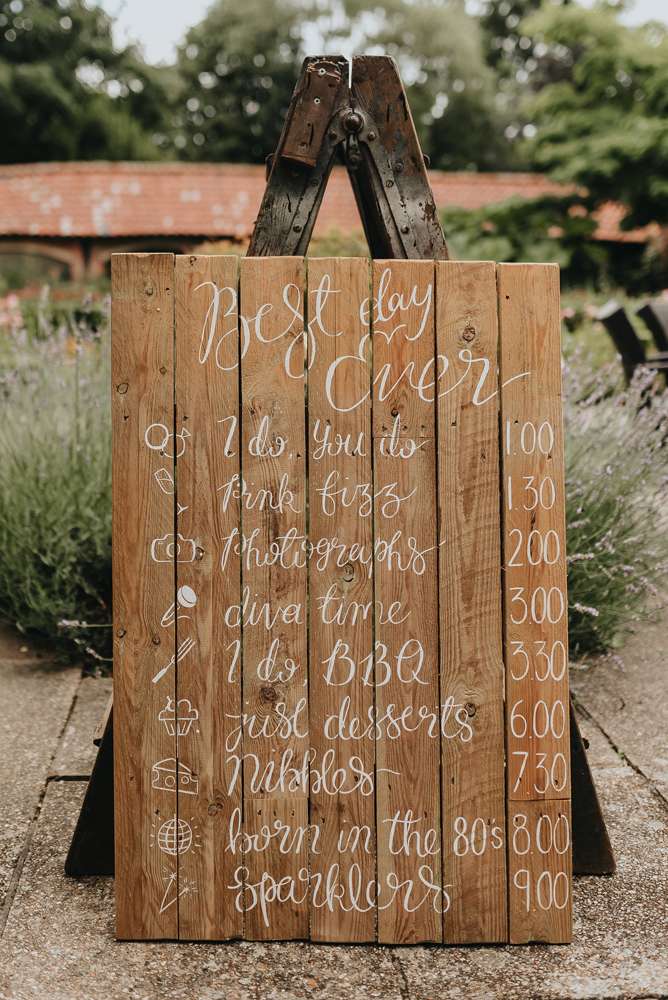 Best day
Ever
I do, you do 1.00
Pink fizz 1.30
Photographs 2.00
diva time 3.00
I do, BBQ 3.30
just desserts 6.00
Nibbles 7.30
born in the 80's 8.00
Sparklers 9.00